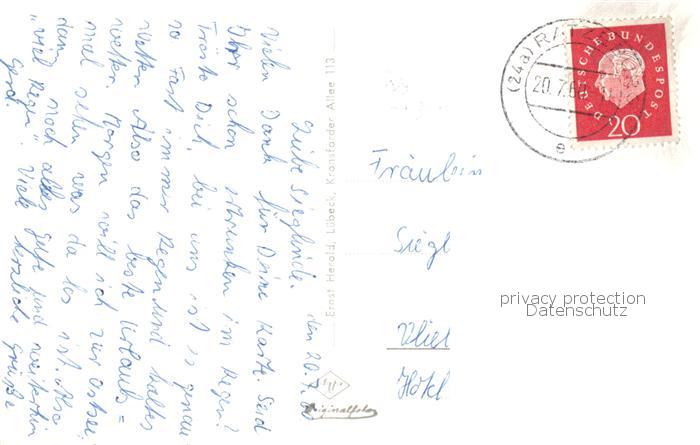 den 20.7.60
Liebe Sieglinde.
Vielen Dank für Deine Karte. Seid
Ihr schon ertrunken im Regen?
Tröste Dich, bei uns ist es genau
so Fast immer Regen und kaltes
Wetter. Also das beste Urlaubs=
wetter. Morgen will ich zur Ostsee,
mal sehen was da los ist. Also
dann noch alles gute und weiterhin
„viel Regen". Viele herzliche Grüße
Gerd.
Ernst Herold, Lübeck, Kronsforder Allee 113
Originalfoto
Fräulein
Siegl
Vliet
Hökl
(24a) RATZ
20.7.60
e
DEUTSCHE BUNDESPOST
20
privacy protection
Datenschutz